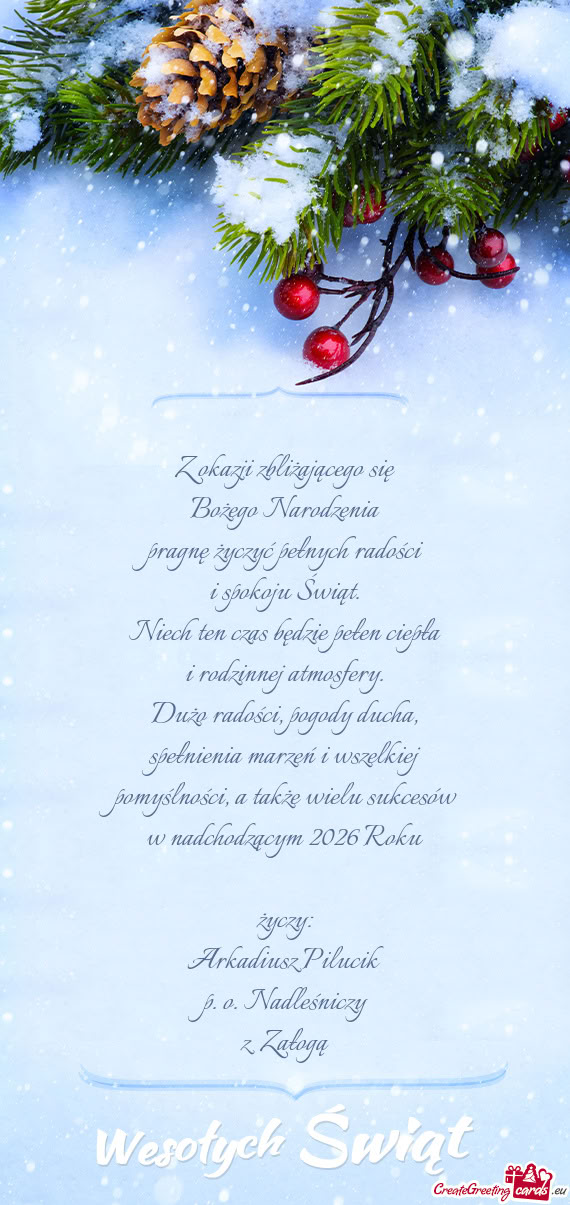 Z okazji zbliżającego się
Bożego Narodzenia
pragnę życzyć pełnych radości
i spokoju Świąt.
Niech ten czas będzie pełen ciepła
i rodzinnej atmosfery.
Dużo radości, pogody ducha,
spełnienia marzeń i wszelkiej
pomyślności, a także wielu sukcesów
w nadchodzącym 2026 Roku
życzy:
Arkadiusz Pilucik
p. o. Nadleśniczy
z Załogą
Wesołych Świąt
CreateGreeting cards .eu